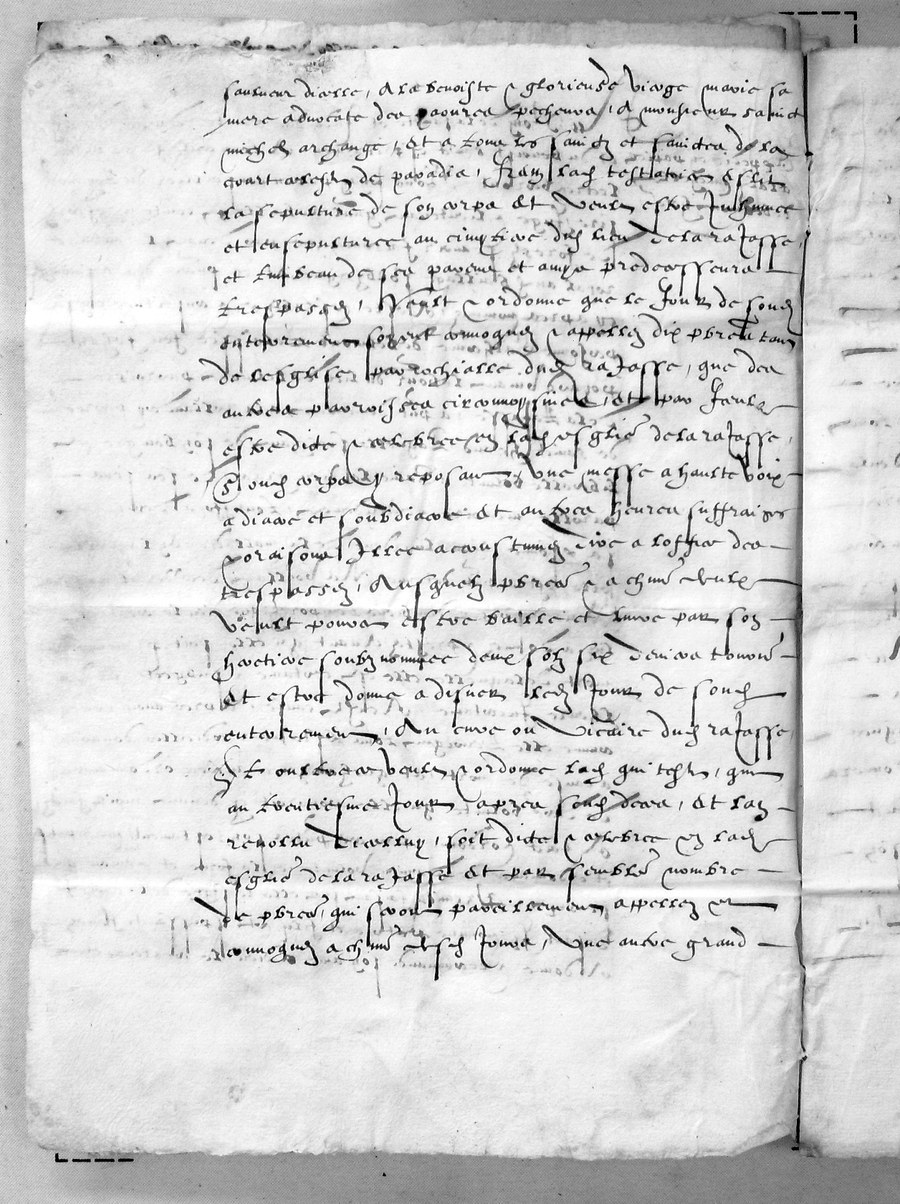 saulueur dicelle, A la benoiste & glorieuse vierge marie sa
mere advocate des paoures pecheurs, A monsieur sainct
michel archange, Et a tous les sainctz et sainctes de la
court celeste de paradis, Item lad testatrice eslit
la sepulture de son corps Et veult estre Inhumee
et ensepulturee au cimetiere dud lieu de la raJasse,
et tumbeau de ses parens et amys predecesseurs
trespassez, Veult & ordonne que le Jour de soud
enterrement soyent convoquez & appellez dix pbres tant
de lesglise parrochialle dud raJasse, que des
autres parroisses circonvoysines, Et par Iceulx
estre dicte & celebree en lad esglise de la raJasse,
Soud corps y reposant, Une messe a haulte voix
a diacre et soubdiacre Et autres heures suffraiges
& oraisons Illec acoustumez dire a loffice des
trespassez, Ausquelz pbres & a chun diceulx
veult pour estre baille et livre par son
heretiere soubz nommee deux solz six deniers tourn
Et estre donne a disner led Jour de soud
enterrement, Au cure ou vicaire dud raJasse,
Et oultre ce veult & ordonne lad testatr, que
au trentiesme Jour apres soud deces, Et lan
revollu dicelluy, soit dicte & celebree en lad
esglise de la raJasse Et par semblé nombre
de pbres, qui seront pareillement appellez et
convoquez a chun desd Jours, Une autre grand